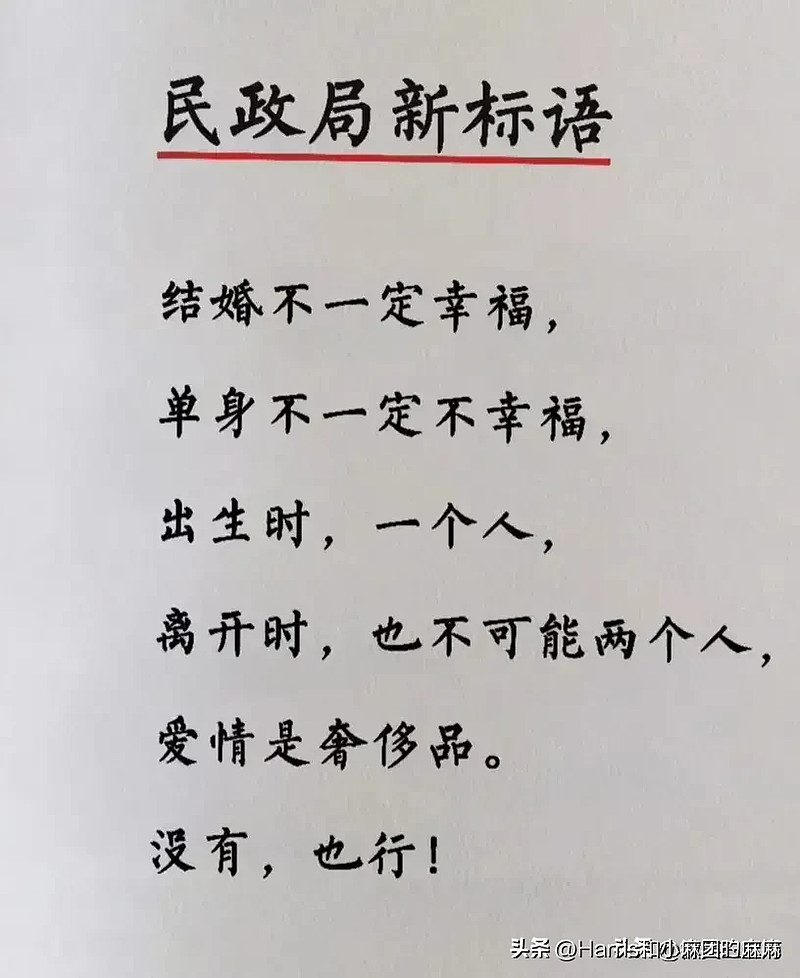 民政局新标语
结婚不一定幸福，
单身不一定不幸福，
出生时，一个人，
离开时，也不可能两个人，
爱情是奢侈品。
没有，也行！
头条